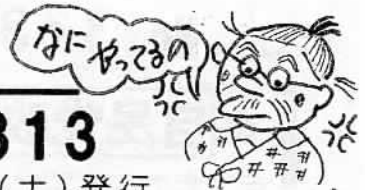 なに
やってるの
313
(土)発行